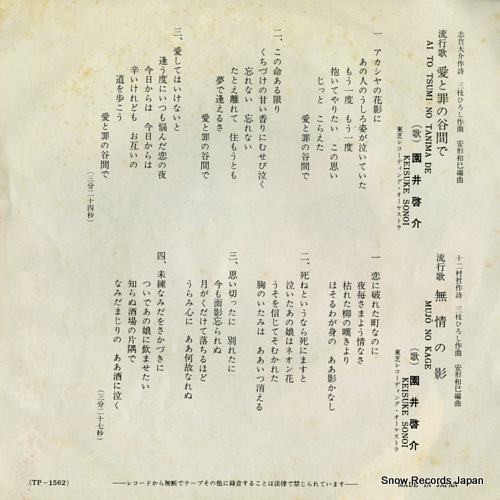 志賀大介作詩 三枝ひろし作曲 安形和巳編曲
流行歌 愛と罪の谷間で
AI TO TSUMI NO TANIMA DE
(歌) 園井啓介
KEISUKE SONOI
東芝レコーディング・オーケストラ
一 アカシヤの花影に
あの人のうしろ姿が泣いていた
もう一度 もう一度
抱いてやりたい この思い
じっと こらえた
愛と罪の谷間で
二、この命ある限り
くちづけの甘い香りにむせび泣く
忘れない 忘れない
たとえ離れて 住もうとも
夢で逢えるさ
愛と罪の谷間で
三、愛してはいけないと
逢う度にいつも悩んだ恋の夜
今日からは 今日からは
辛いけれども お互いの
道を歩こう
愛と罪の谷間で
(三分二十四秒)
十二村哲作詩 三枝ひろし作曲 安形和巳編曲
流行歌 無情の影
MUJŌ NO KAGE
(歌) 園井啓介
KEISUKE SONOI
東芝レコーディング・オーケストラ
一 恋に破れた町なのに
夜毎さまよう情なさ
枯れた柳の嘆きより
ほそるわが身の ああ影かなし
二、死ねというなら死にますと
泣いたあの娘はネオン花
うそを信じてそむかれた
胸のいたみは ああいつ消える
三、思い切ったに 別れたに
今も面影忘られぬ
月がくだけて落ちるほど
うらみ心に ああ何故なれぬ
四、未練なみだをさかづきに
ついであの娘に飲ませたい
知らぬ酒場の片隅で
なみだまじりの ああ酒に泣く
(三分二十七秒)
(TP-1562)
——レコードから無断でテープその他に録音することは法律で禁じられています——
MADE IN JAPAN
Snow Records Japan